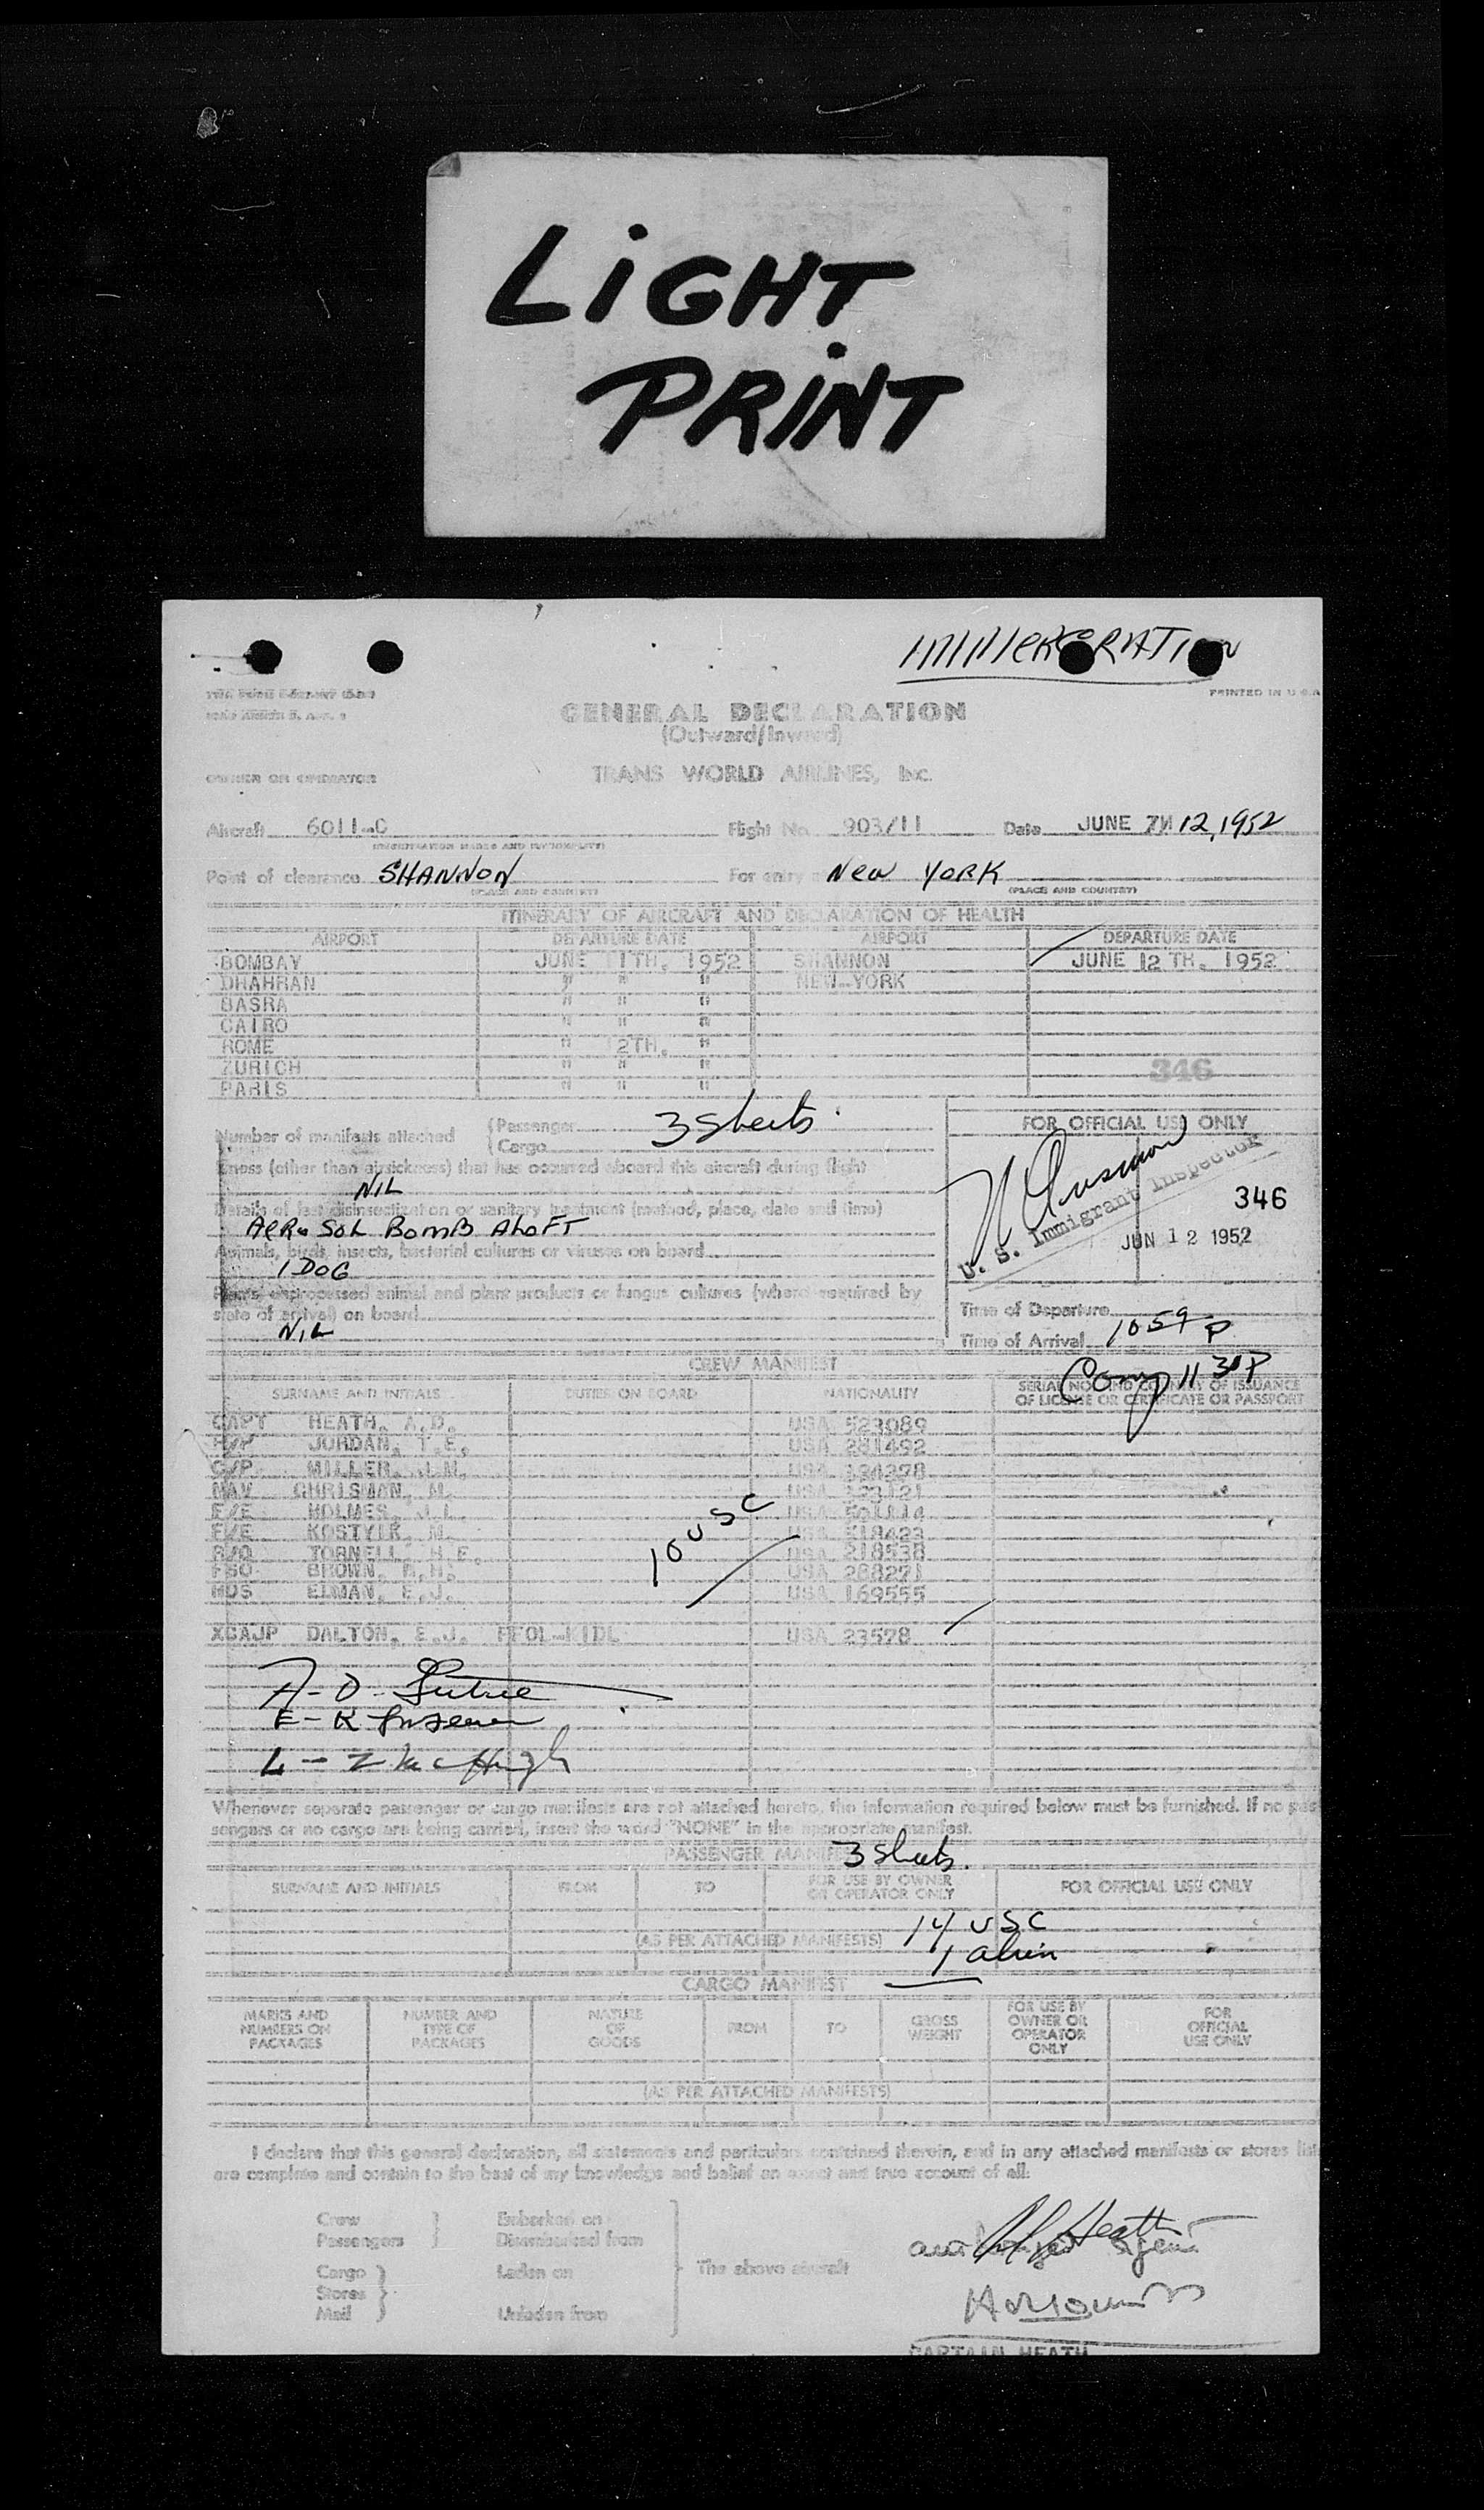 LiGHT
PRiNT
IMMIGRATION
PRINTED IN U.S.A
GENERAL DECLARATION
(Outward/Inward)
OWNER OR OPERATOR TRANS WORLD AIRLINES, Inc.
Aircraft 6011-C Flight No. 903/11 Date JUNE 12, 1952
(REGISTRATION MARKS AND NATIONALITY)
Point of clearance SHANNON For entry New YORK
(PLACE AND COUNTRY) (PLACE AND COUNTRY)
ITINERARY OF AIRCRAFT AND DECLARATION OF HEALTH
AIRPORT DEPARTURE DATE AIRPORT DEPARTURE DATE
BOMBAY JUNE 11TH. 1952 SHANNON JUNE 12 TH. 1952
DHAHRAN " " " NEW-YORK
BASRA " " "
CAIRO " " "
ROME " 12TH. "
ZURICH " " "
PARIS " " "
346
Number of manifests attached { Passenger 3 Sheets
Cargo
FOR OFFICIAL USE ONLY
Illness (other than airsickness) that has occurred aboard this aircraft during flight
NIL
Details of last disinsectization or sanitary treatment (method, place, date and time)
AeRoSoL BomB ALoFT
Animals, birds, insects, bacterial cultures or viruses on board
1 DOG
Plants, unprocessed animal and plant products or fungus cultures (where required by
state of arrival) on board
NIL
U. S. Immigrant Inspector
346
JUN 12 1952
Time of Departure
Time of Arrival 1059 P
Comp 11 30 P
CREW MANIFEST
SURNAME AND INITIALS DUTIES ON BOARD NATIONALITY SERIAL NO. AND COUNTRY OF ISSUANCE
OF LICENSE OR CERTIFICATE OR PASSPORT
CAPT HEATH, A.D. USA 523089
JORDAN, T.E. USA 281492
MILLER, J.N. USA 134278
NAV CHRISMAN, M. USA 123121
F/E HOLMES, J.L. USA 501114
F/E KOSTYIR, M. USA 518423
R/O TORNELL, H.E. USA 218538
FSO BROWN, R.H. USA 288271
HOS ELMAN, E.J. USA 169555
10 USC
XCAJP DALTON, E.J. USA 23578
Whenever separate passenger or cargo manifests are not attached hereto, the information required below must be furnished. If no pas
sengers or no cargo are being carried, insert the word "NONE" in the appropriate manifest.
PASSENGER MANIFEST 3 Sheets.
SURNAME AND INITIALS FROM TO FOR USE BY OWNER
OR OPERATOR ONLY FOR OFFICIAL USE ONLY
14 USC
(AS PER ATTACHED MANIFESTS)
1 alien
CARGO MANIFEST
MARKS AND
NUMBERS ON
PACKAGES NUMBER AND
TYPE OF
PACKAGES NATURE
OF
GOODS FROM TO GROSS
WEIGHT FOR USE BY
OWNER OR
OPERATOR
ONLY FOR
OFFICIAL
USE ONLY
(AS PER ATTACHED MANIFESTS)
I declare that this general declaration, all statements and particulars contained therein, and in any attached manifests or stores list
are complete and contain to the best of my knowledge and belief an exact and true account of all:
Crew Embarked on
Passengers Disembarked from
Cargo Laden on The above aircraft
Stores
Mail Unladen from
Heath
CAPTAIN HEATH